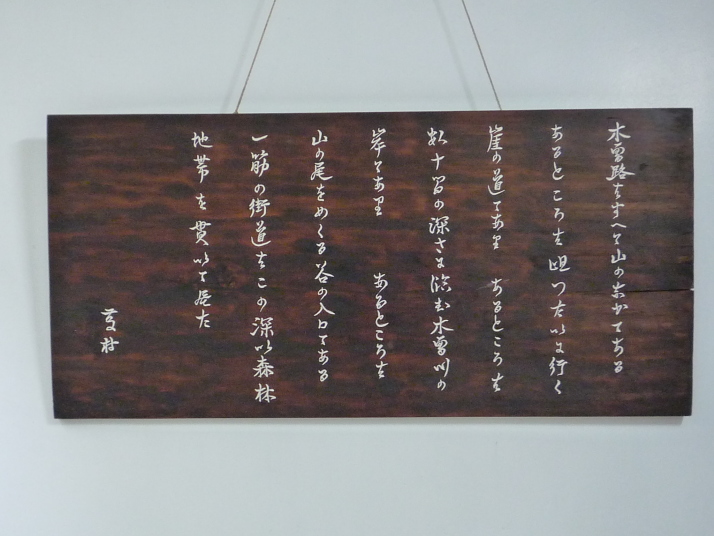 木曽路はすへて山の中てある
あるところは岨つたいに行く
崖の道てあり あるところは
数十間の深さに臨む木曽川の
岸てあり あるところは
山の尾をめくる谷の入口てある
一筋の街道はこの深い森林
地帯を貫いて居た
藤村